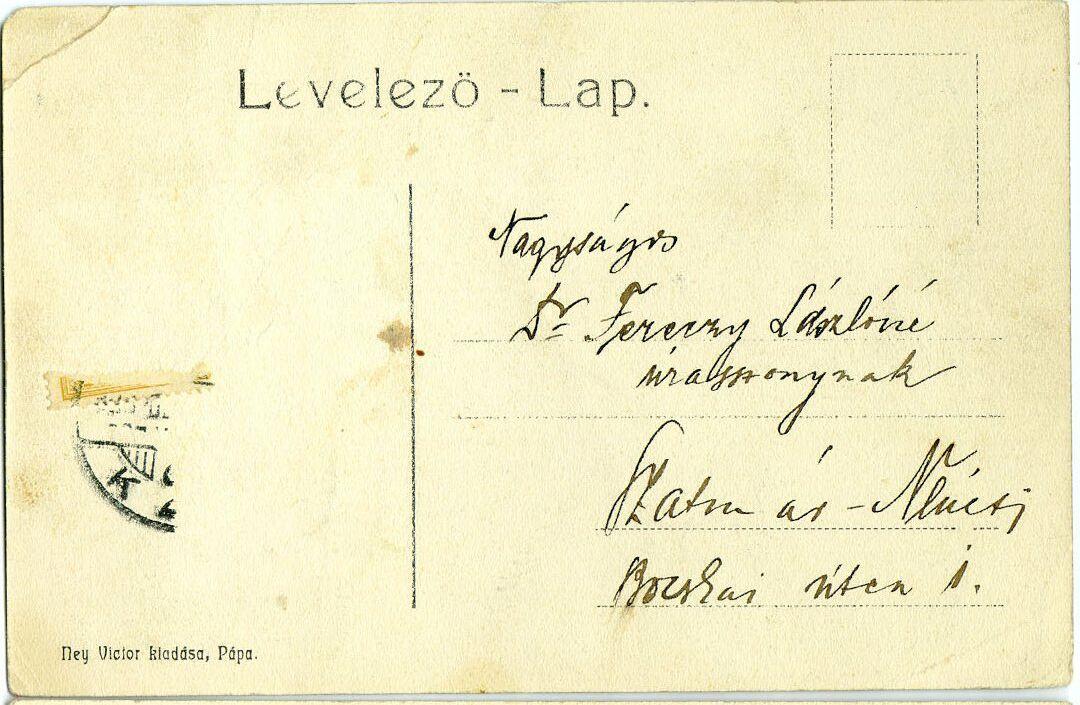 Levelező - Lap.
Nagyságos
Dr Fereczy Lászlóné
úrasszonynak
Szatmár - Németi
Bocskai úten 1.
K
Ney Victor kiadása, Pápa.